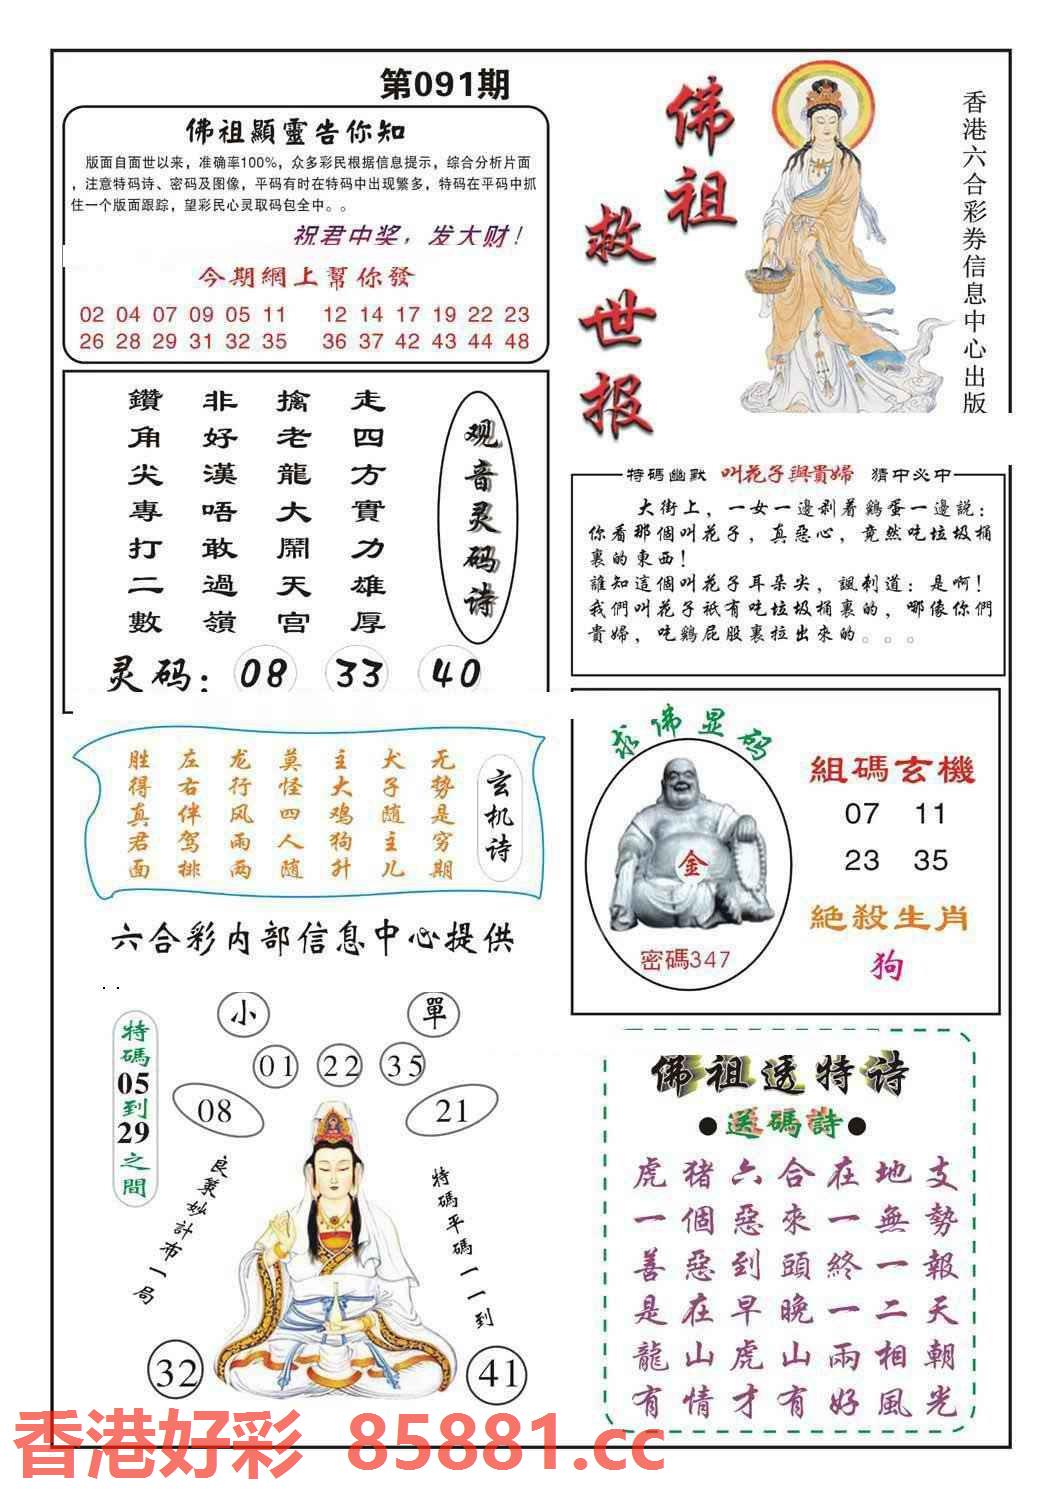 第091期
佛祖顯靈告你知
版面自面世以来，准确率100%，众多彩民根据信息提示，综合分析片面
，注意特码诗、密码及图像，平码有时在特码中出现繁多，特码在平码中抓
住一个版面跟踪，望彩民心灵取码包全中。。
祝君中奖，发大财！
今期網上幫你發
02 04 07 09 05 11 12 14 17 19 22 23
26 28 29 31 32 35 36 37 42 43 44 48
佛祖
救世报
香港六合彩券信息中心出版
观音灵码诗
走四方實力雄厚
擒老龍大鬧天宮
非好漢唔敢過嶺
鑽角尖專打二數
灵码：08 33 40
特碼幽默 叫花子與貴婦 猜中必中
大街上，一女一邊剥着鷄蛋一邊說：
你看那個叫花子，真惡心，竟然吃垃圾桶
裏的東西！
誰知這個叫花子耳朵尖，諷刺道：是啊！
我們叫花子衹有吃垃圾桶裏的，哪像你們
貴婦，吃鷄屁股裏拉出來的。。。
玄机诗
无势是穷期
犬子随主儿
主大鸡狗升
莫怪四人随
龙行风雨两
左右伴驾排
胜得真君面
六合彩内部信息中心提供
求佛显码
金
密碼347
組碼玄機
07 11
23 35
絕殺生肖
狗
特碼05到29之間
小 單
01 22 35
08 21
良策妙計布一局
特碼平碼一一到
32 41
佛祖透特诗
●送碼詩●
虎猪六合在地支
一個惡來一無勢
善惡到頭終一報
是在早晚一二天
龍山虎山兩相朝
有情才有好風光
香港好彩 85881.cc